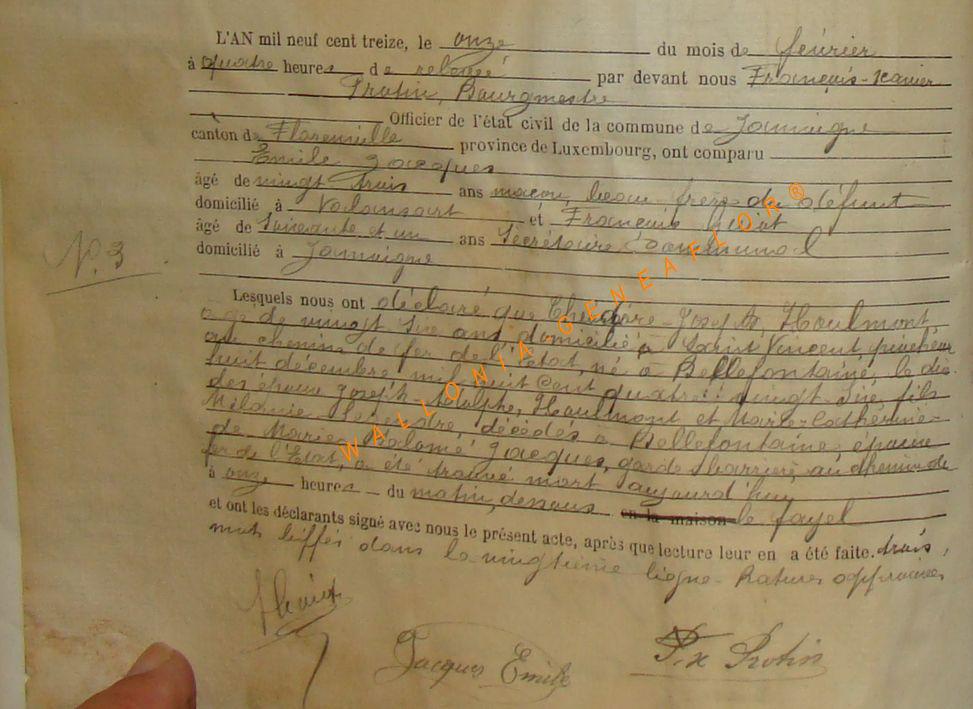 L'AN mil neuf cent treize, le onze du mois de février
à quatre heures de relevée par devant nous François-Xavier
Protin, Bourgmestre
Officier de l'état civil de la commune de Jamoigne
canton de Florenville province de Luxembourg, ont comparu
Emile Jacques
âgé de vingt trois ans maçon, beau frère du défunt
domicilié à Valansart et François
âgé de Soixante et un ans Secrétaire Communal
domicilié à Jamoigne
N. 3
Lesquels nous ont déclaré que Théodore-Joseph, Houlmont
agé de vingt six ans, domicilié à Saint Vincent
au chemin de fer de l'Etat, né à Bellefontaine, le dix
huit décembre mil huit cent quatre vingt Six, fils
des époux Joseph-Adolphe, Houlmont et Marie-Catherine-
Mélanie décédés à Bellefontaine, époux
de Marie Salomé Jacques, garde barrière au chemin de
fer de l'Etat, a été trouvé mort aujourd'huy
à onze heures du matin, dessous en la maison le fayel
et ont les déclarants signé avec nous le présent acte, après que lecture leur en a été faite. trois
mots biffés dans la vingtième ligne. Ratures approuvées
Jacques Emile
F. x Protin
WALLONIA GENEAFLOR®